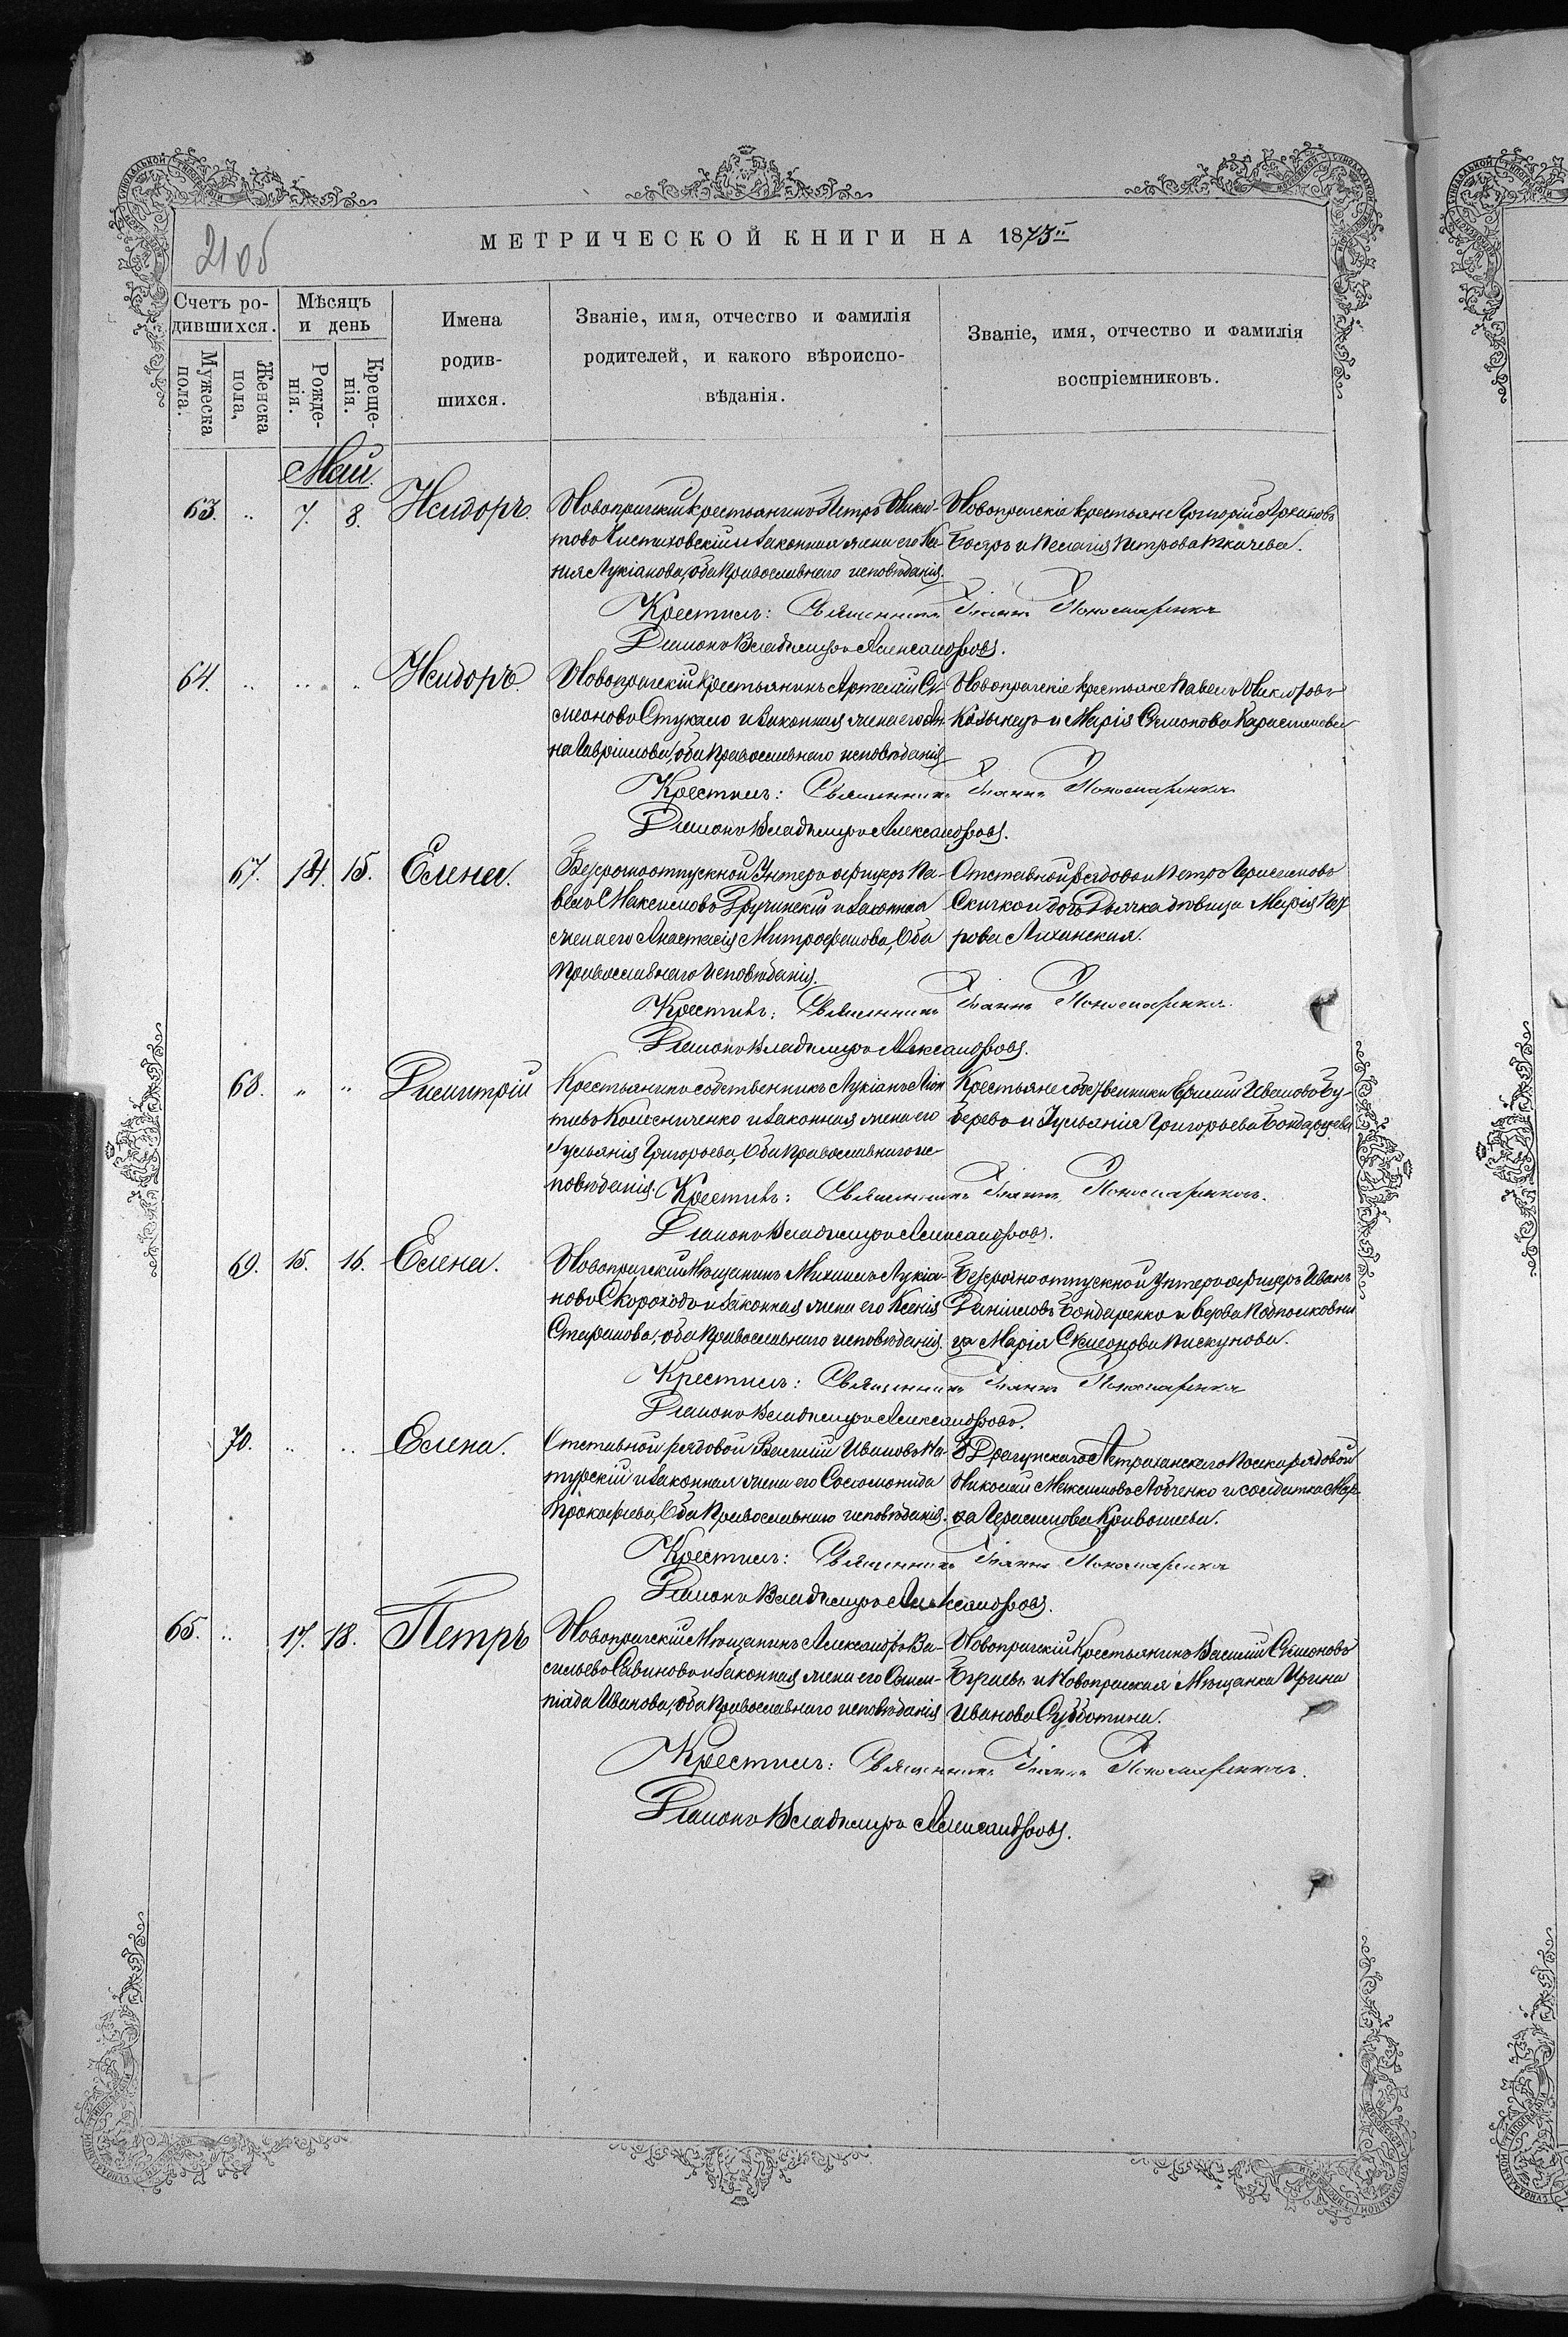 21об
МЕТРИЧЕСКОЙ КНИГИ НА 1873й
Счетъ ро-
дившихся.
Мѣсяцъ
и день
Имена
родив-
шихся.
Званіе, имя, отчество и фамилія
родителей, и какого вѣроиспо-
вѣданія.
Званіе, имя, отчество и фамилія
воспріемниковъ.
Мужеска
пола.
Женска
пола,
Рожде-
нія.
Креще-
нія.
Май.
63. „ 7. 8. Исидоръ.
Новопражскій крестьянинъ Петръ Ники-
товъ и законная жена его Ксе-
нія Лукіанова, оба православнаго исповѣданія.
Новопражскіе крестьяне Григорій Архиповъ
Бояръ и Пелагія Петрова Ткачева.
Крестилъ: Священникъ Іоаннъ Пономаренко
Діаконъ Владиміръ Александровъ.
64. „ „ „ Исидоръ.
Новопражскій крестьянинъ Артемій Си-
меоновъ Стукало и законная жена его Ан-
на Гавріилова, оба православнаго исповѣданія
Новопражскіе крестьяне Павелъ
и Марія Симонова
Крестилъ: Священникъ Іоаннъ Пономаренко
Діаконъ Владиміръ Александровъ.
67. 14. 15. Елена.
Безсрочноотпускной Унтеръ офицеръ Па-
велъ Максимовъ Дручинскій и законная
жена его Анастасія Митрофанова, Оба
православнаго исповѣданія.
Отставной рядовой Петръ Герасимовъ
Скичко и дочь Дьячка дѣвица Марія Пет-
рова Лиханская.
Крестилъ: Священникъ Іоаннъ Пономаренко
Діаконъ Владиміръ Александровъ.
68. „ „ Димитрій
Крестьянинъ собственникъ Лукіанъ Леон-
тіевъ Колесниченко и законная жена его
Іуліанія Григорьева, Оба православнаго ис-
повѣданія.
Крестьяне собственники Ивановъ Бу-
и Іуліанія Григорьева Бондарцева
Крестилъ: Священникъ Іоаннъ Пономаренко.
Діаконъ Владиміръ Александровъ.
69. 15. 16. Елена.
Новопражскій Мѣщанинъ Михаилъ Лукіа-
новъ Скороходъ и законная жена его Ксенія
Стефанова, оба православнаго исповѣданія.
Безсрочноотпускной Унтеръ офицеръ Иванъ
Даніиловъ Бондаренко и вдова Подполковни-
ца Марія Симеонова Пискунова.
Крестилъ: Священникъ Іоаннъ Пономаренко
Діаконъ Владиміръ Александровъ.
70. „ „ Елена.
Отставной рядовой Василій Ивановъ Ма-
турскій и законная жена его Соломонида
Прокофьева, Оба православнаго исповѣданія.
8 Драгунскаго Астраханскаго Полка рядовой
Николай Максимовъ и солдатка Мар-
ѳа Герасимова Кривошеева.
Крестилъ: Священникъ Іоаннъ Пономаренко
Діаконъ Владиміръ Александровъ.
65. „ 17. 18. Петръ
Новопражскій Мѣщанинъ Александръ Ва-
сильевъ Савиновъ и законная жена его Олим-
піада Иванова, оба православнаго исповѣданія
Новопражскій Крестьянинъ Василій Симоновъ
и Новопражская Мѣщанка Ирина
Иванова Субботина.
Крестилъ: Священникъ Іоаннъ Пономаренко.
Діаконъ Владиміръ Александровъ.